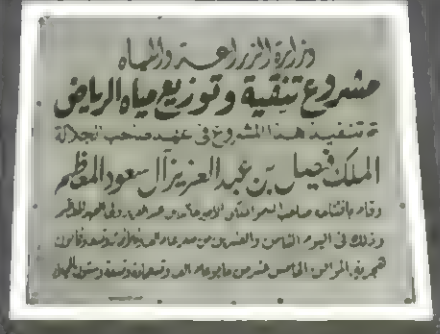 وزارة الزراعة والمياه
مشروع تنقية وتوزيع مياه الرياض
تم تنفيذ هذا المشروع في عهد صاحب الجلالة
الملك فيصل بن عبد العزيز آل سعود المعظم
وقام بافتتاحه صاحب السمو الملكي الأمير خالد بن عبد العزيز ولي العهد المعظم
وذلك في اليوم الثامن والعشرين من صفر عام ألف وثلاثمائة وتسعة وثمانون
هجرية الموافق الخامس عشر من مايو عام ألف وتسعمائة وتسعة وستون